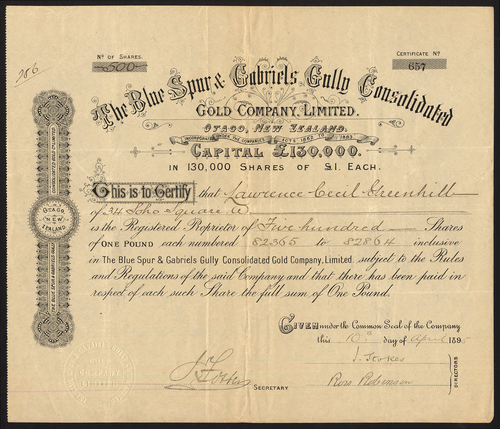 Nº OF SHARES.
500
CERTIFICATE Nº
657
286
The Blue Spur & Gabriels Gully Consolidated
GOLD COMPANY, LIMITED.
OTAGO, NEW ZEALAND.
INCORPORATED UNDER THE COMPANIES ACTS 1862 TO 1883
CAPITAL £130,000.
IN 130,000 SHARES OF £1. EACH.
This is to Certify that Lawrence Cecil Greenhill
of 34 Soho Square
is the Registered Proprietor of Five hundred Shares
of ONE POUND each numbered 82365 to 82864 inclusive
in The Blue Spur & Gabriels Gully Consolidated Gold Company, Limited. subject to the Rules
and Regulations of the said Company and that there has been paid in
respect of each such Share the full sum of One Pound.
GIVEN under the Common Seal of the Company
this 10th day of April 1895
J. Stokes
Ross Robinson
DIRECTORS
SECRETARY
THE BLUE SPUR & GABRIELS GULLY
CONSOLIDATED GOLD COY LIMITED
OTAGO
NEW
ZEALAND